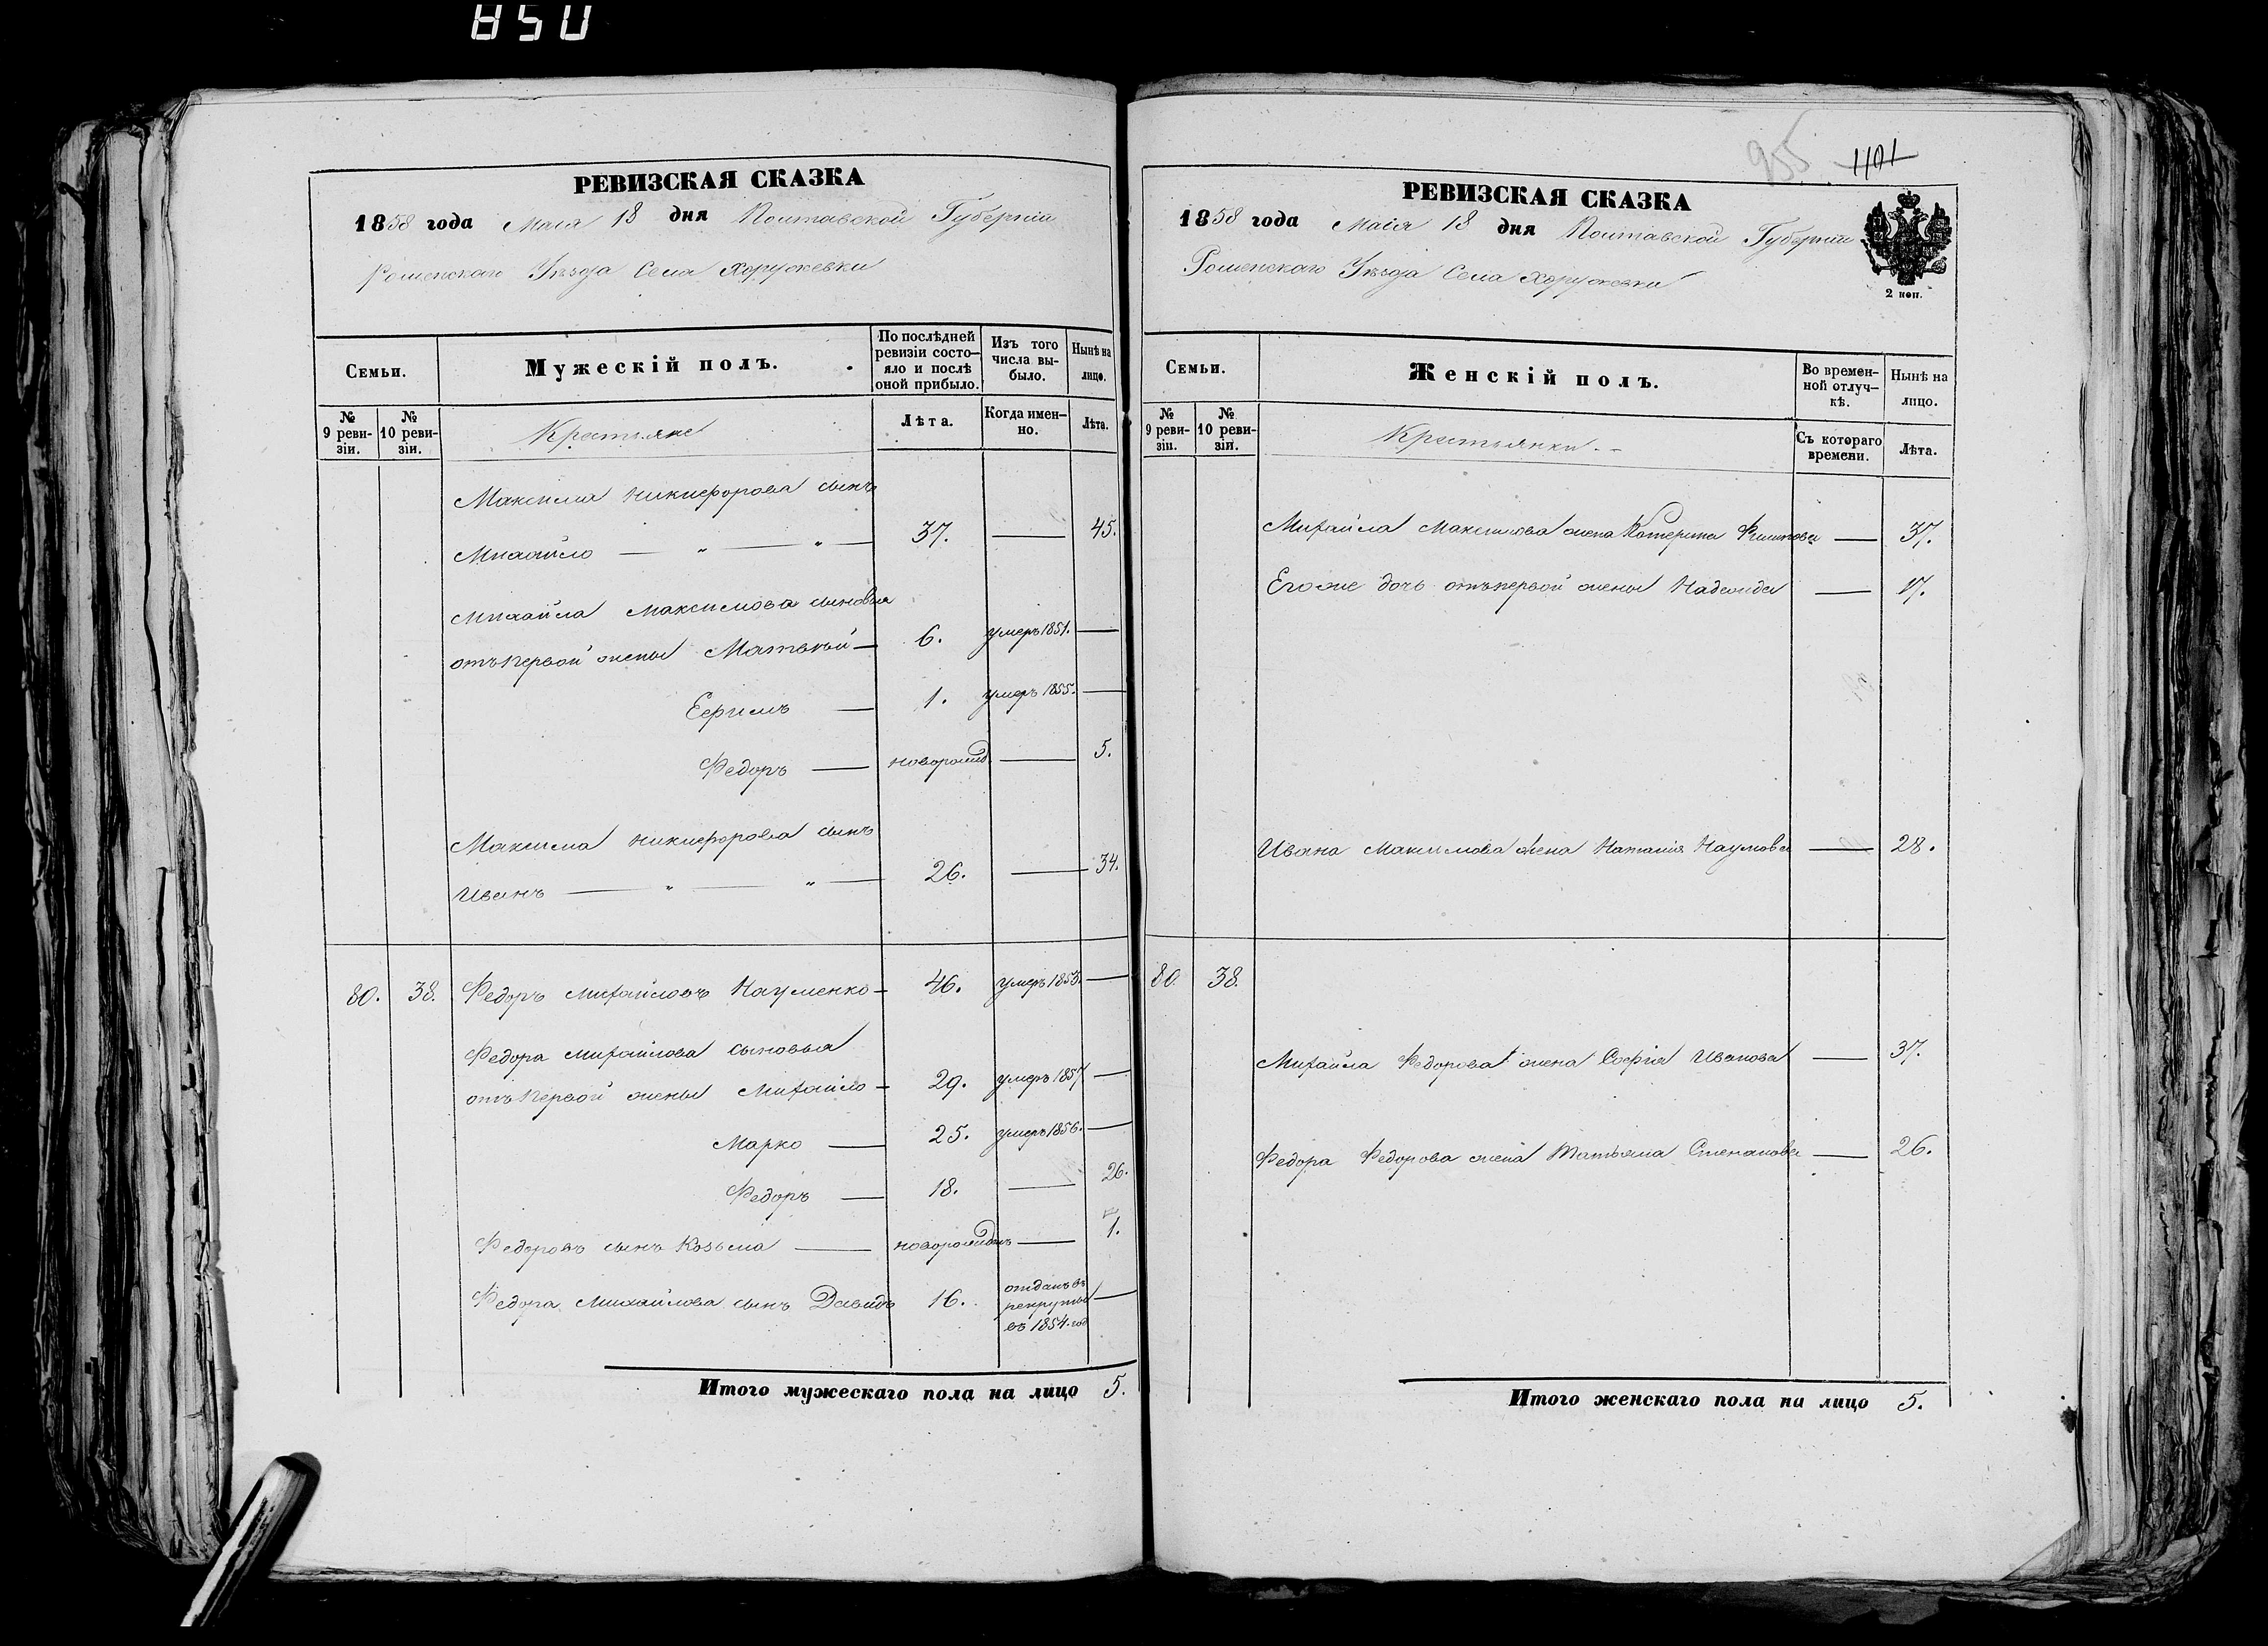 850
РЕВИЗСКАЯ СКАЗКА
1858 года Маія 18 дня Полтавской Губерніи
Роменскаго Уѣзда Села Хоружевки
Семьи.
Мужескій полъ.
По послѣдней ревизіи состо-
яло и послѣ
оной прибыло.
Изъ того
числа вы-
было.
Нынѣ на
лицо.
№
9 реви-
зіи.
№
10 реви-
зіи.
Крестьяне
Лѣта.
Когда имен-
но.
Лѣта.
Максима Никифорова сынъ
Михайло — „ — „ — 37. — 45.
Михайла Максимова сыновья
отъ первой жены Матвѣй — 6. умеръ 1851. —
Ефимъ — 1. умеръ 1855. —
Федоръ — новорожд. — 5.
Максима Никифорова сынъ
Иванъ — „ — „ — 26. — 34.
80. 38. Федоръ Михайловъ Науменко — 46. умеръ 1853. —
Федора Михайлова сыновья
отъ первой жены Михайло — 29. умеръ 1857 —
Марко — 25. умеръ 1856. —
Федоръ — 18. — 26.
Федоровъ сынъ Козьма — новорожденъ — 1.
Федора Михайлова сынъ Давидъ 16. отданъ въ
рекруты —
въ 1854. год
Итого мужескаго пола на лицо 5.
955 1101
РЕВИЗСКАЯ СКАЗКА
1858 года Маія 18 дня Полтавской Губерніи
Роменскаго Уѣзда Села Хоружевки
2 коп.
Семьи.
Женскій полъ.
Во времен-
ной отлуч-
кѣ.
Нынѣ на
лицо.
№
9 реви-
зіи.
№
10 реви-
зіи.
Крестьянки.
Съ котораго
времени.
Лѣта.
Михайла Максимова жена Катерина — 37.
Его же дочь отъ первой жены Надежда — 17.
Ивана Максимова жена Наталія Наумова — 28.
80. 38.
Михайла Федорова жена Софія Иванова — 37.
Федора Федорова жена Татьяна Степанова — 26.
Итого женскаго пола на лицо 5.